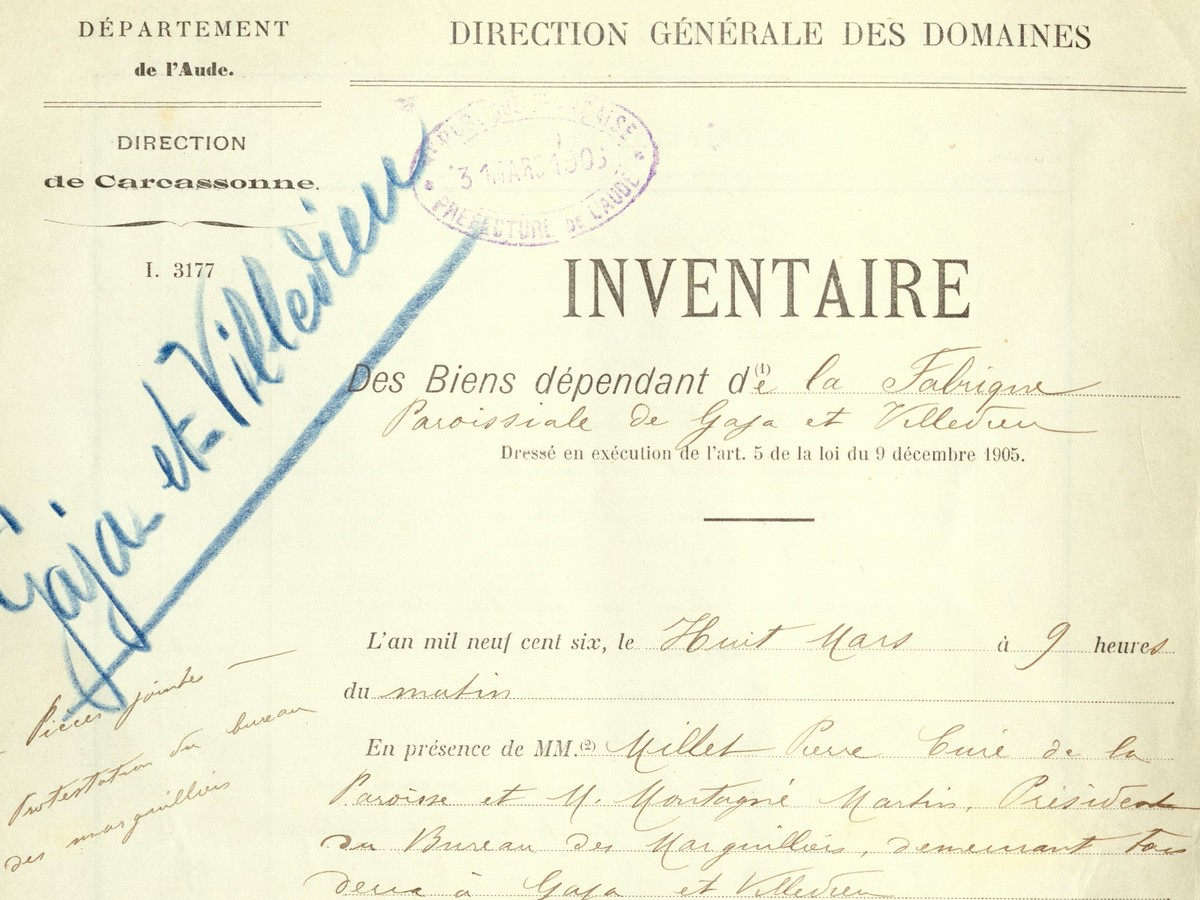 DÉPARTEMENT
de l'Aude.
DIRECTION
de Carcassonne.
I. 3177
Gaja et Villedieu
DIRECTION GÉNÉRALE DES DOMAINES
RÉPUBLIQUE FRANÇAISE
31 MARS 190
PRÉFECTURE DE L'AUDE
INVENTAIRE
Des Biens dépendant d(1)e la Fabrique
Paroissiale de Gaja et Villedieu
Dressé en exécution de l'art. 5 de la loi du 9 décembre 1905.
L'an mil neuf cent six, le Huit Mars à 9 heures
du matin
En présence de MM.(2) Millet Pierre Curé de la
Paroisse et M. Montagné Martin, Président
du Bureau des Marguilliers, demeurant tous
deux à Gaja et Villedieu
Pièces jointes —
Protestation du bureau
des marguilliers